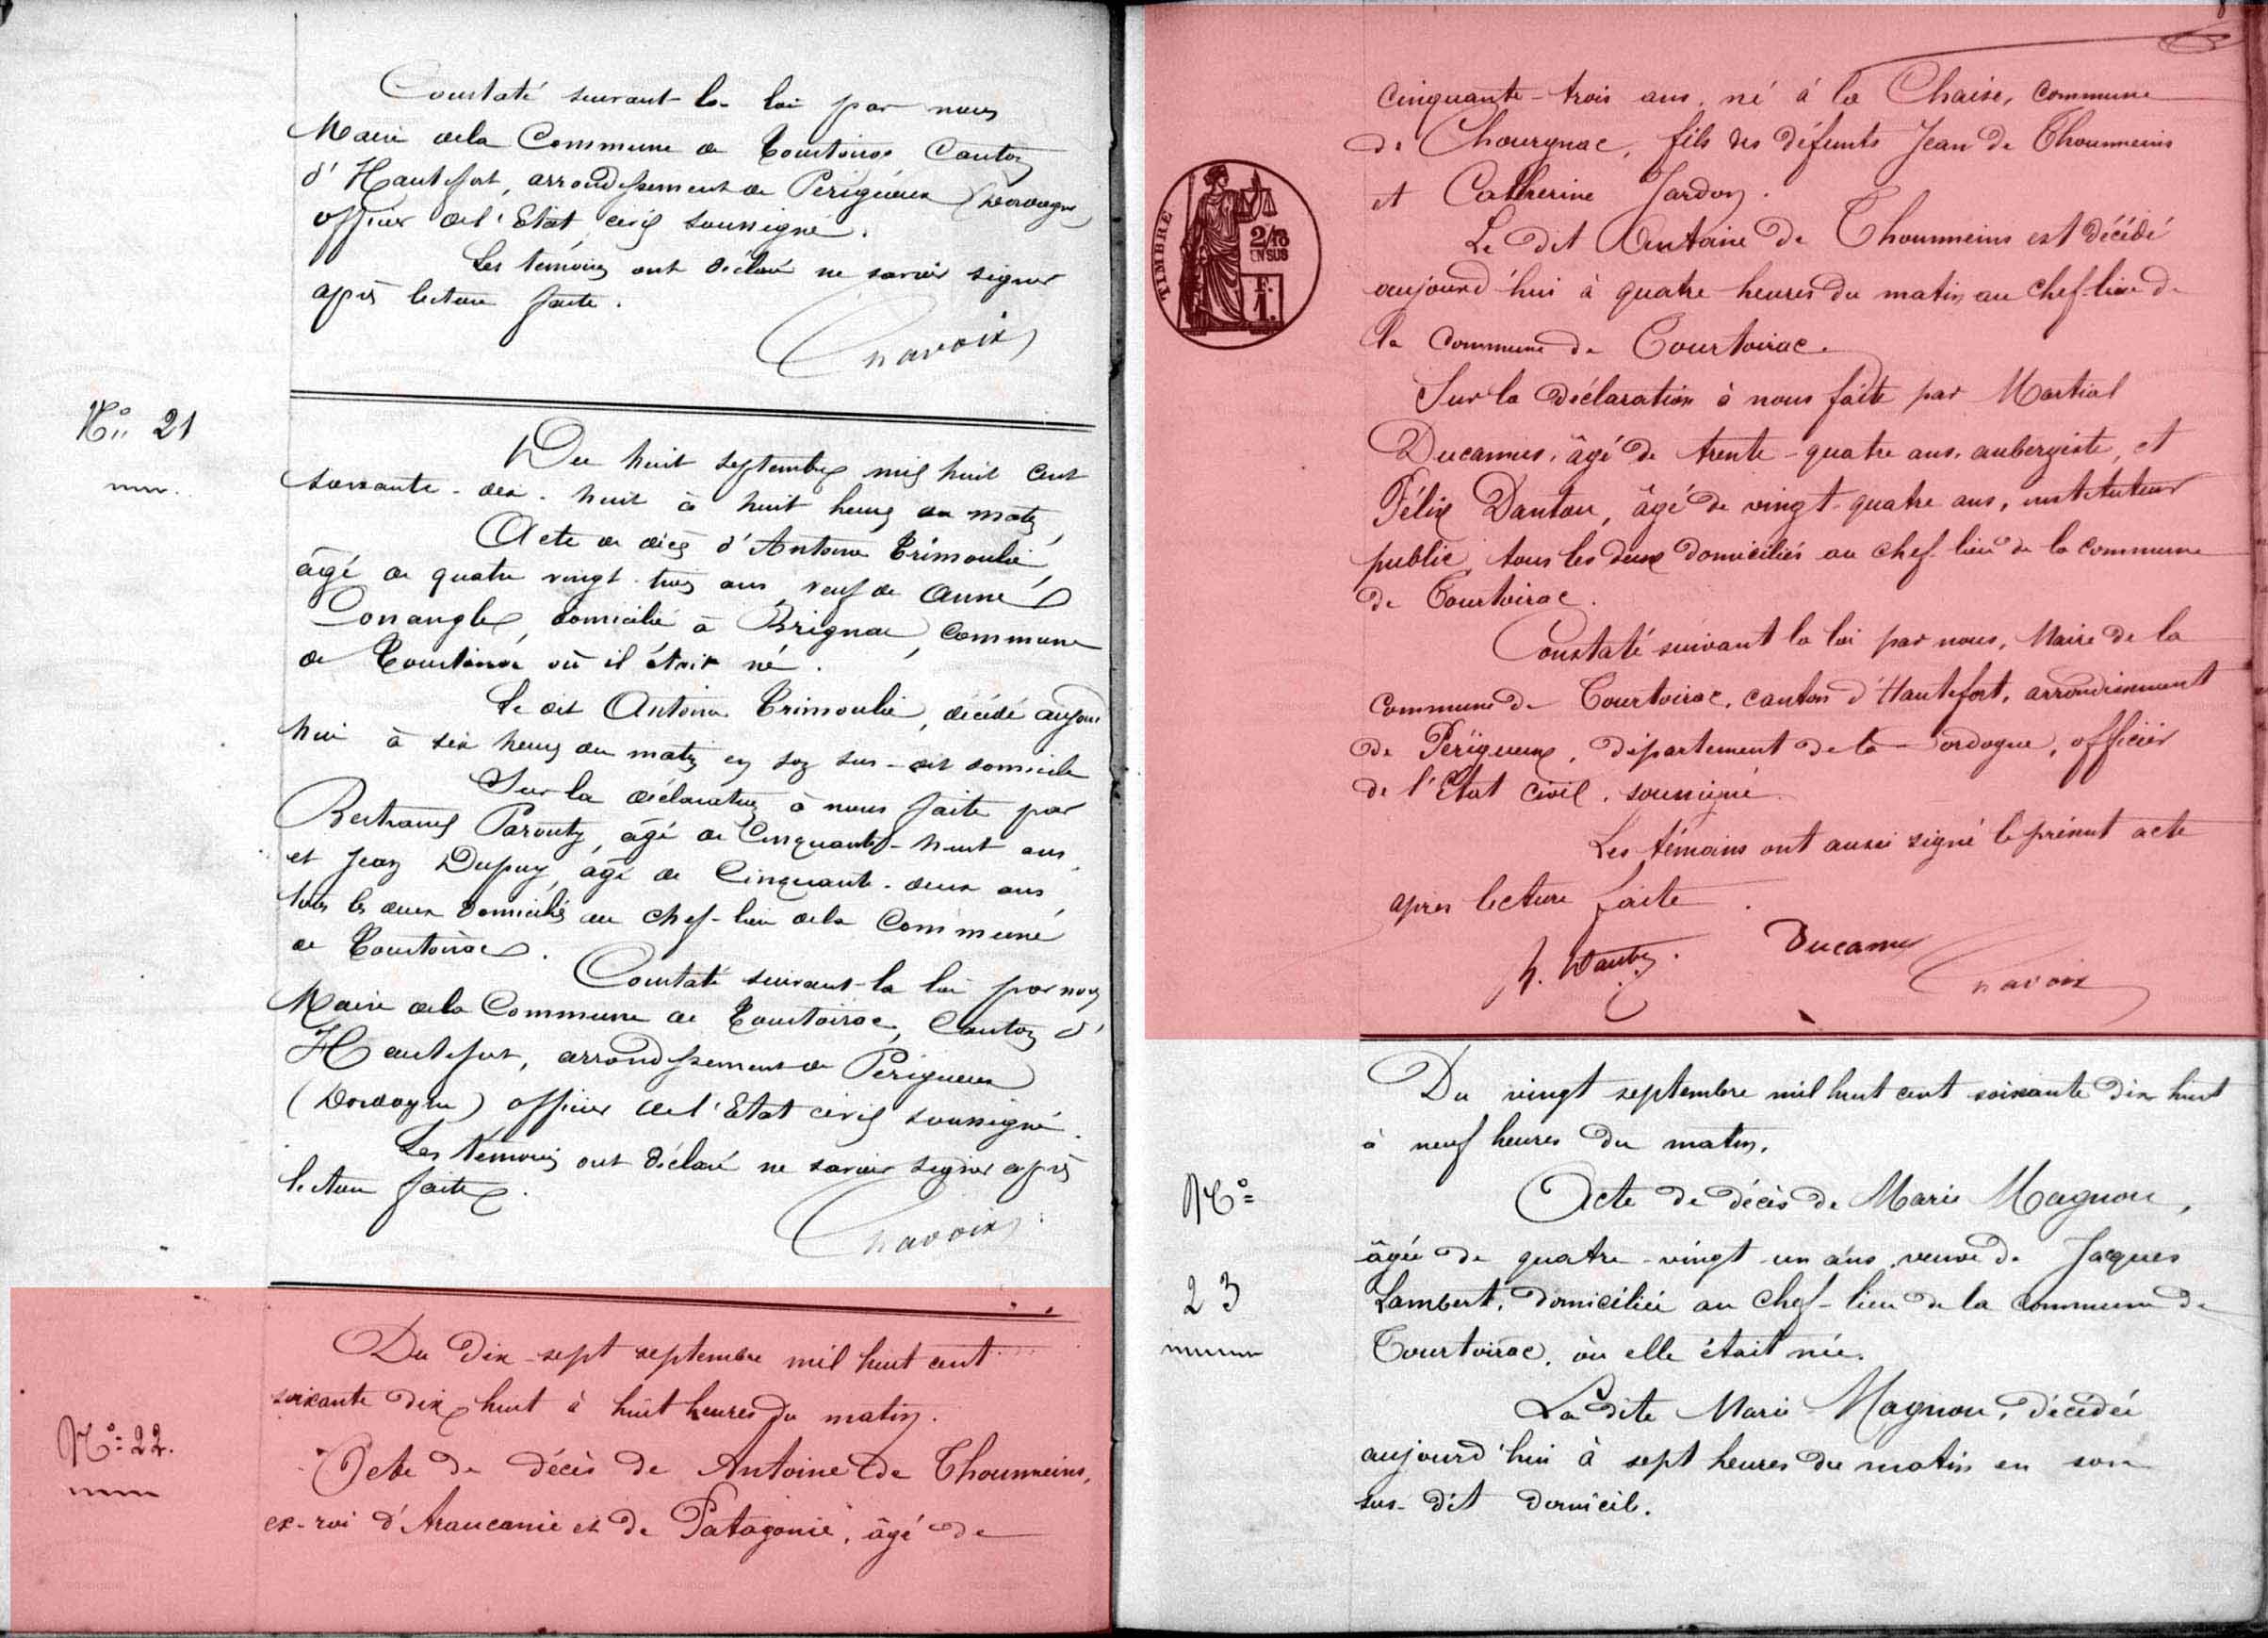 Constaté suivant la loi par nous
Maire de la Commune de Tourtoirac Canton
d'Hautefort, arrondissement de Périgueux (Dordogne
officier de l'Etat civil soussigné.
Les témoins ont déclaré ne savoir signer
après lecture faite.
Chavoix
N° 21
Du huit septembre mil huit cent
soixante-dix-huit à huit heures du matin,
Acte de décès d'Antoine Trimoulie,
âgé de quatre vingt trois ans, veuf de Anne
domicilié à Brignac, commune
de Tourtoirac où il était né.
Le dit Antoine Trimoulie, décédé aujourd
hui à six heures du matin en son sus-dit domicile
Sur la déclaration à nous faite par
Bertrand Parouty, âgé de cinquante-huit ans,
et Jean Dupuy, âgé de cinquante-deux ans,
tous les deux domiciliés au chef-lieu de la Commune
de Tourtoirac.
Constaté suivant la loi par nous
Maire de la Commune de Tourtoirac, Canton d'
Hautefort, arrondissement de Périgueux
(Dordogne) officier de l'Etat civil soussigné.
Les témoins ont déclaré ne savoir signer après
lecture faite.
Chavoix
N° 22.
Du dix-sept septembre mil huit cent
soixante dix huit à huit heures du matin.
Acte de décès de Antoine de Thounneins,
ex-roi d'Araucanie et de Patagonie, âgé de
cinquante-trois ans, né à la Chaise, commune
de Chourgnac, fils des défunts Jean de Thounneins
et Catherine Jardon.
Le dit Antoine de Thounneins est décédé
aujourd'hui à quatre heures du matin au chef-lieu de
la commune de Tourtoirac.
TIMBRE
2/10
EN SUS
F.
1.
Sur la déclaration à nous faite par Martial
Ducamus, âgé de trente-quatre ans, aubergiste, et
Félix Dantou, âgé de vingt-quatre ans, instituteur
public, tous les deux domiciliés au chef-lieu de la commune
de Tourtoirac.
Constaté suivant la loi par nous, Maire de la
commune de Tourtoirac, canton d'Hautefort, arrondissement
de Périgueux, département de la Dordogne, officier
de l'Etat civil, soussigné.
Les témoins ont aussi signé le présent acte
après lecture faite.
Ducamus
Chavoix
Du vingt septembre mil huit cent soixante dix huit
à neuf heures du matin.
N°
23
Acte de décès de Marie Magnou,
âgée de quatre-vingt-un ans, veuve de Jacques
Lambert, domiciliée au chef-lieu de la commune de
Tourtoirac, où elle était née.
La dite Marie Magnou, décédée
aujourd'hui à sept heures du matin en son
sus-dit domicile.